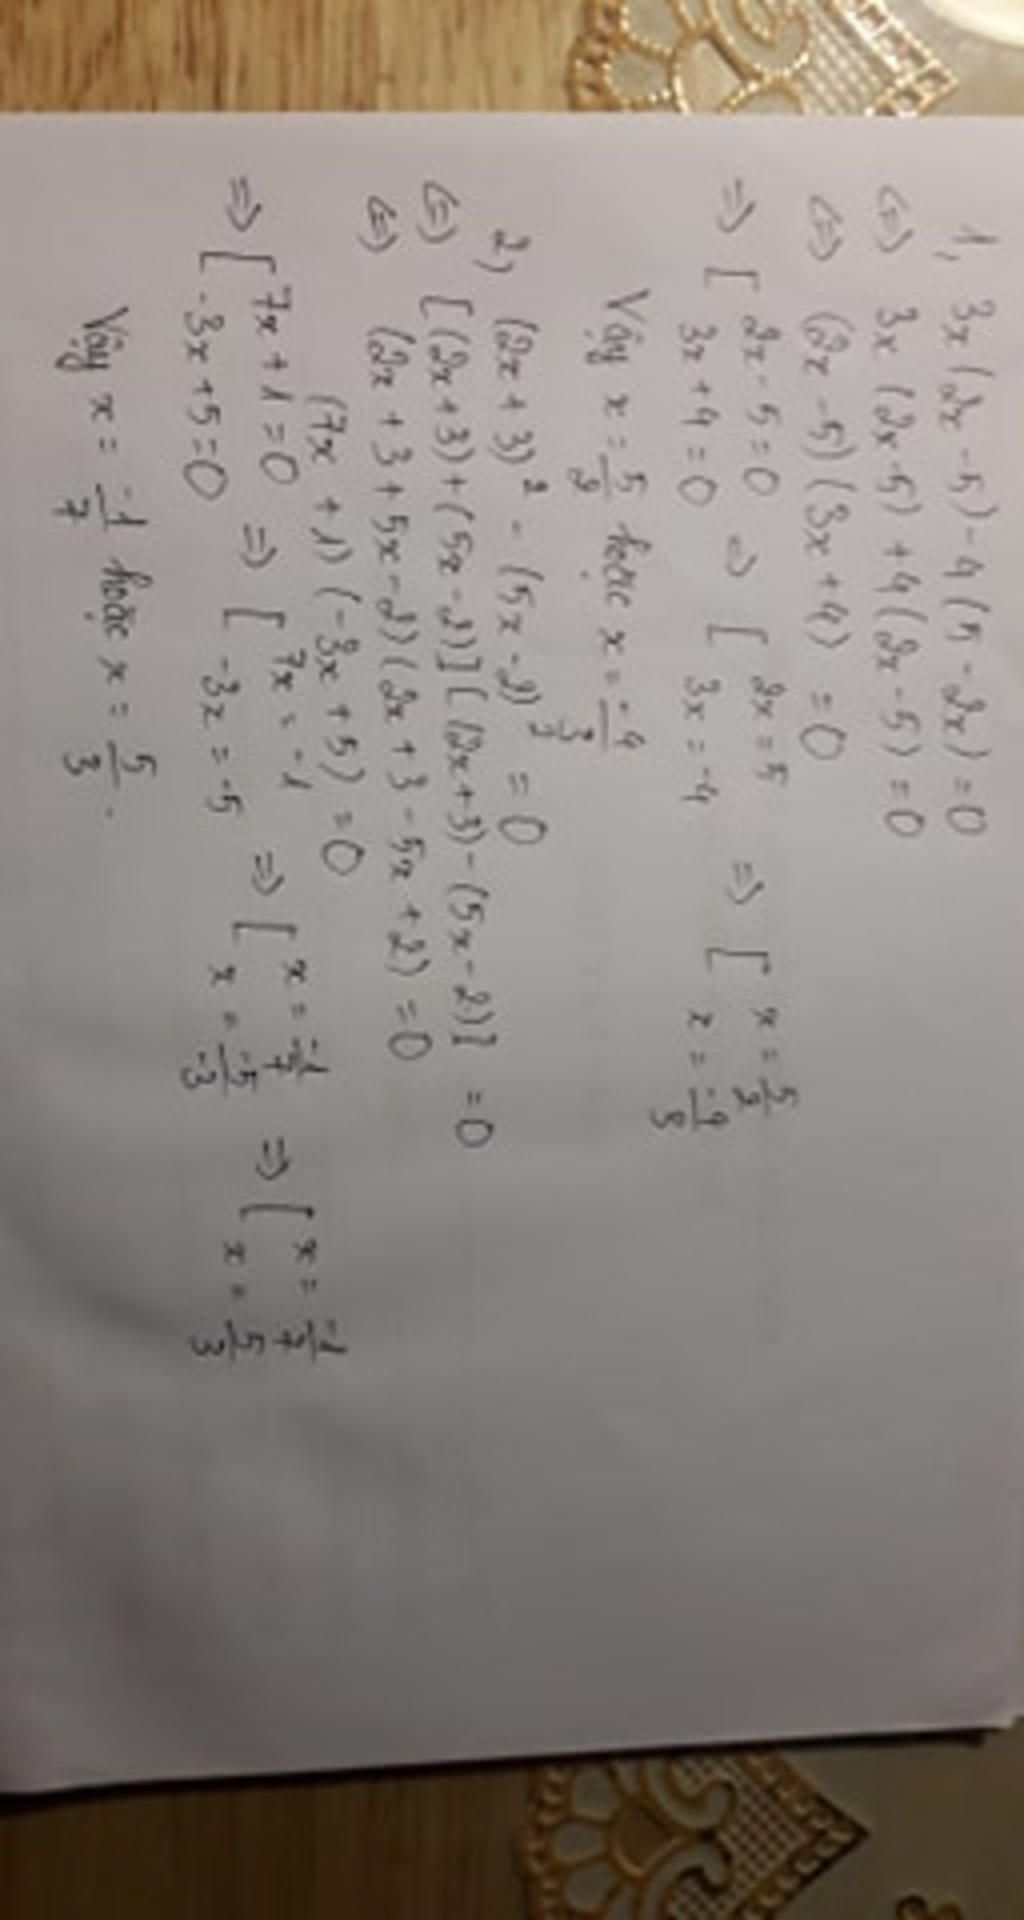 1, 3x(2x-5)-4(5-2x)=0
<=> 3x(2x-5)+4(2x-5)=0
<=> (2x-5)(3x+4)=0
=> [ 2x-5=0 => [ 2x=5 => [ x=5/2
3x+4=0 3x=-4 x=-4/3
Vậy x=5/2 hoặc x=-4/3
2, (2x+3)²-(5x-2)²=0
<=> [(2x+3)+(5x-2)][(2x+3)-(5x-2)]=0
<=> (2x+3+5x-2)(2x+3-5x+2)=0
(7x+1)(-3x+5)=0
=> [ 7x+1=0 => [ 7x=-1 => [ x=-1/7 => [ x=-1/7
-3x+5=0 -3x=-5 x=-5/-3 x=5/3
Vậy x=-1/7 hoặc x=5/3.